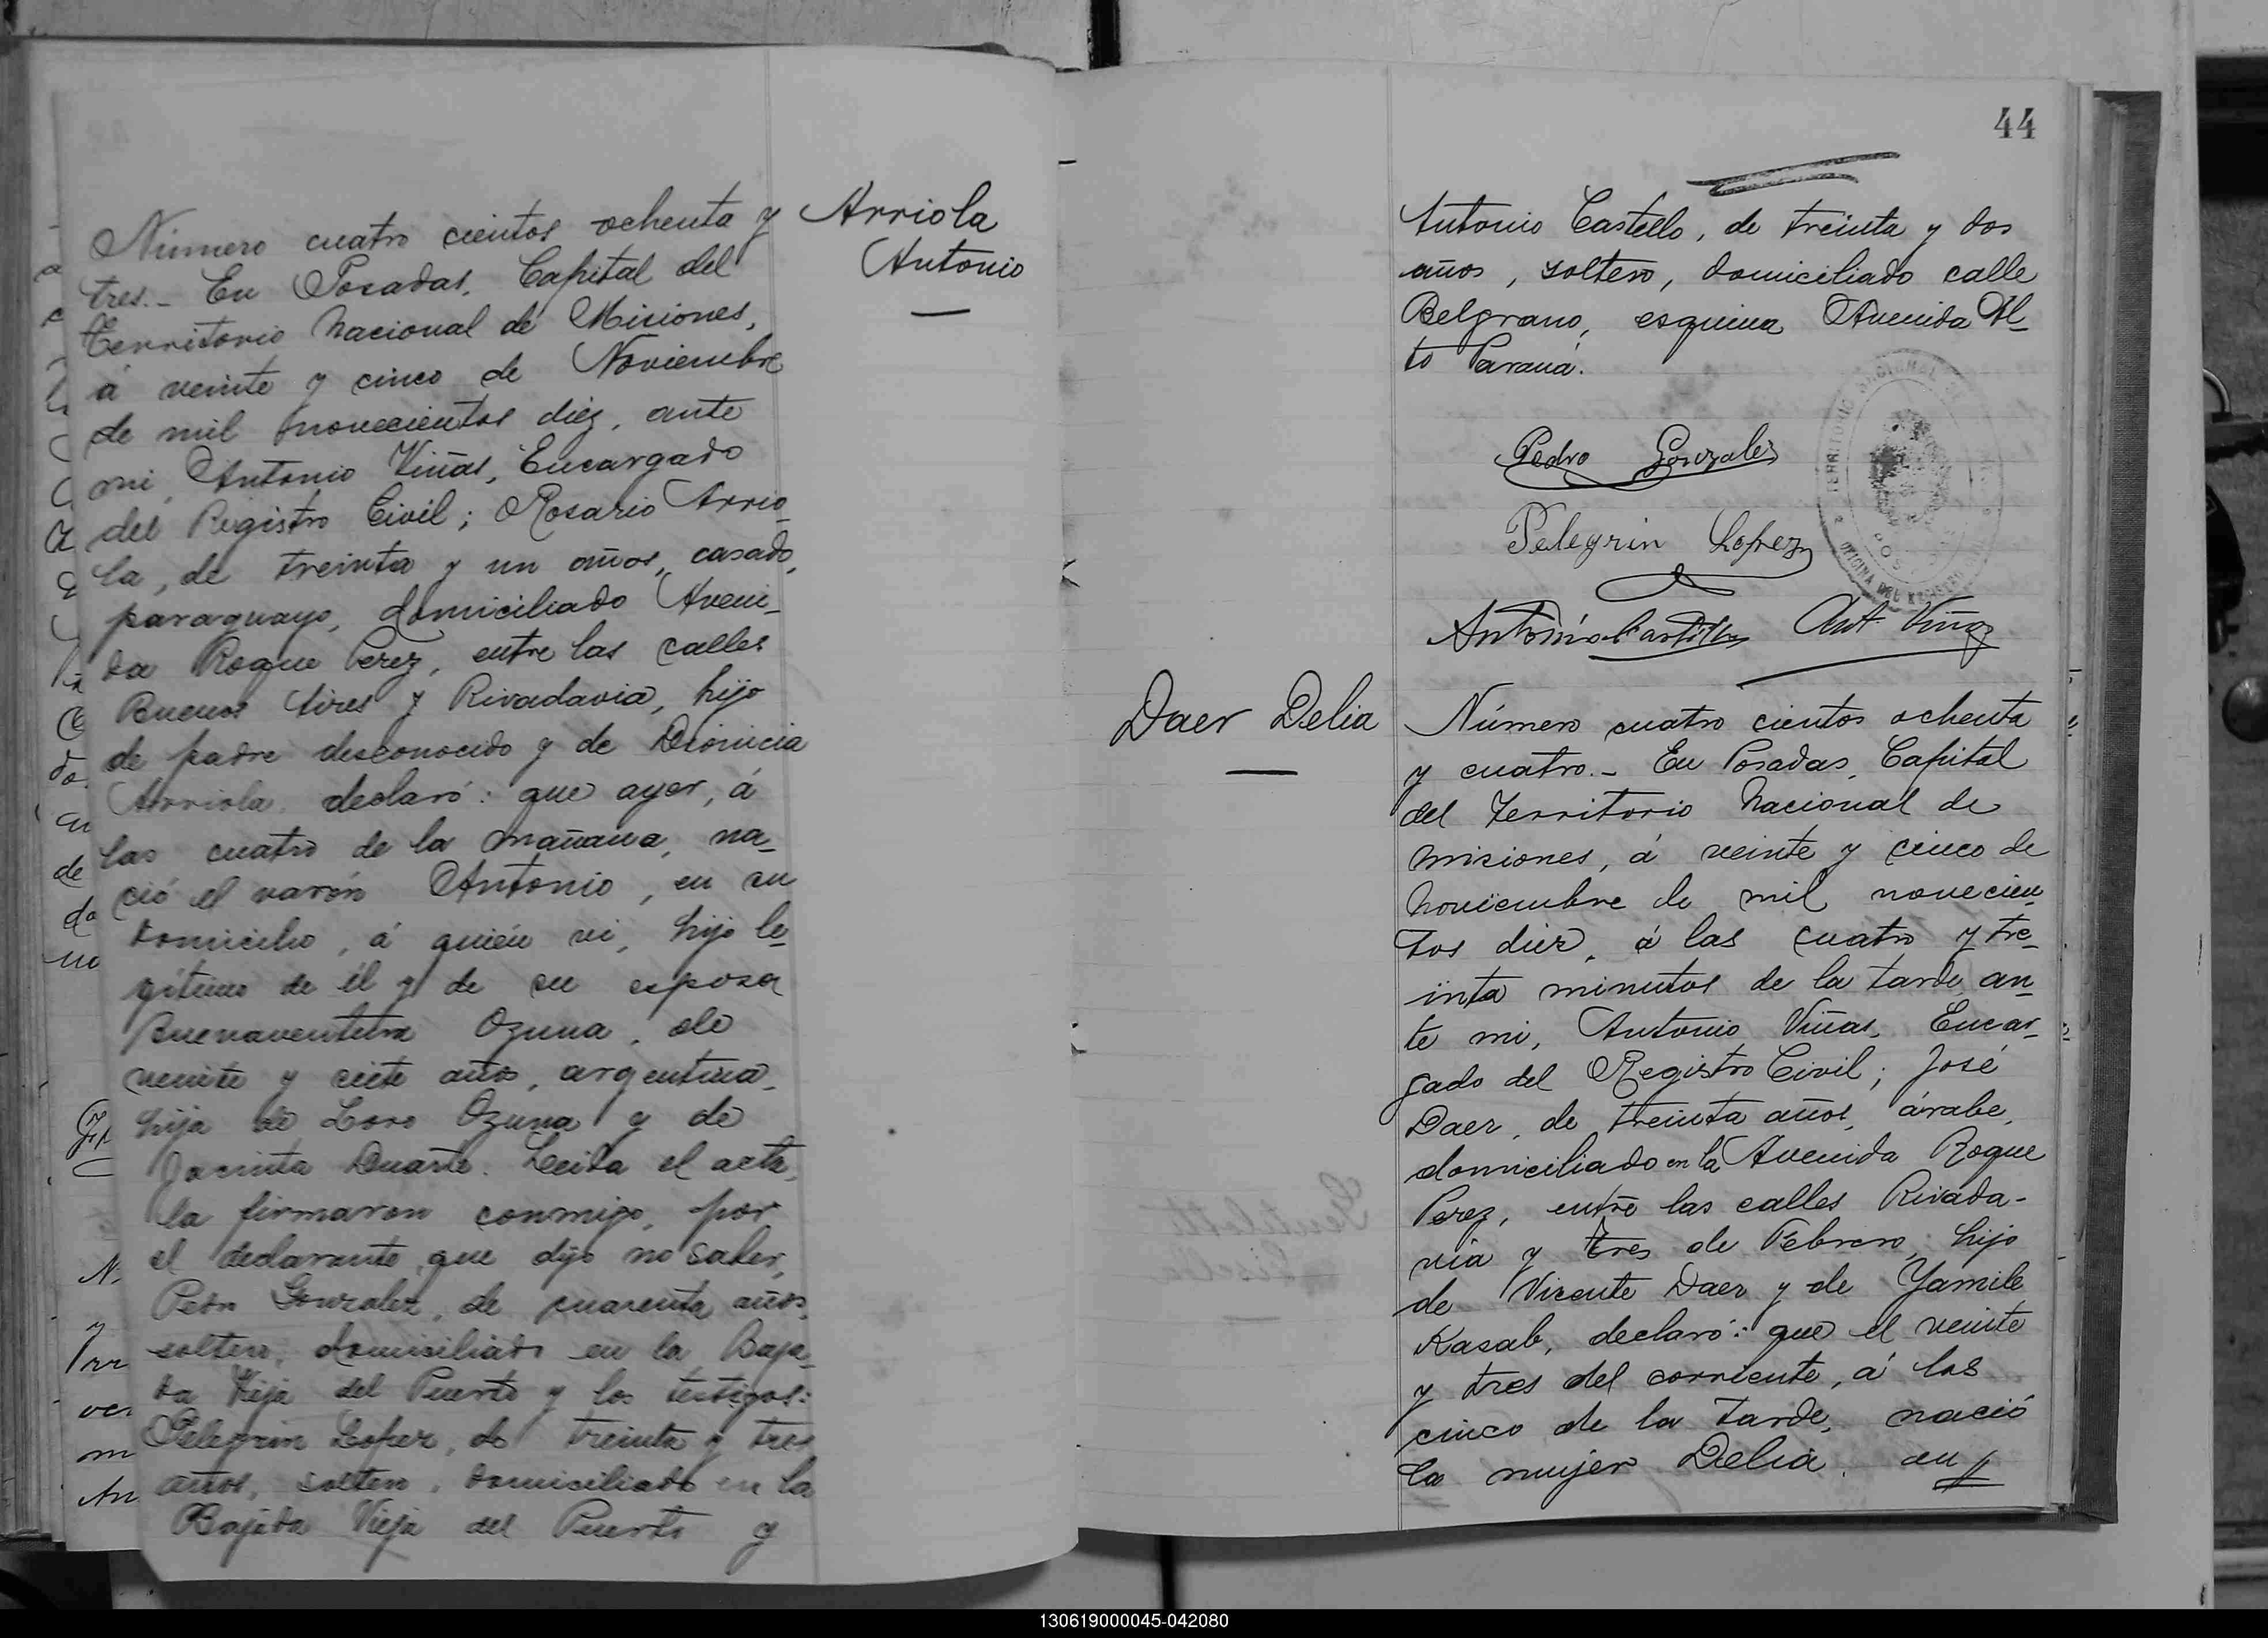 Número cuatro cientos ochenta y
tres.- En Posadas, Capital del
Territorio Nacional de Misiones,
á veinte y cinco de Noviembre
de mil novecientos diez, ante
mi, Antonio Viñas, Encargado
del Registro Civil; Rosario Arrio_
la, de treinta y un años, casado,
paraguayo, domiciliado Aveni_
da Roque Perez, entre las calles
Buenos Aires y Rivadavia, hijo
de padre desconocido y de Dionicia
Arriola, declaró: que ayer, á
las cuatro de la mañana, na_
ció el varón Antonio, en su
domicilio, á quién vi, hijo le_
gítimo de él y de su esposa
Buenaventura Ozuna, de
veinte y siete años, argentina,
hija de Loro Ozuna y de
Jacinta Duarte. Leida el acta,
la firmaron conmigo, por
el declarante, que dijo no saber,
Pedro Gonzalez, de cuarenta años,
soltero, domiciliado en la Baja_
da Vieja del Puerto y los testigos:
Pelegrin Lopez, de treinta y tres
años, soltero, domiciliado en la
Bajada Vieja del Puerto y
Arriola
Antonio
44
Antonio Castello, de treinta y dos
años, soltero, domiciliado calle
Belgrano, esquina Avenida Al_
to Paraná.
Pedro Gonzales
Pelegrin Lopez
Antonio Castello Ant Viñas
TERRITORIO NACIONAL
OFICINA DEL REGISTRO
Daer Delia
Número cuatro cientos ochenta
y cuatro.- En Posadas, Capital
del Territorio Nacional de
Misiones, á veinte y cinco de
Noviembre de mil novecien_
tos diez, á las cuatro y tre_
inta minutos de la tarde, an_
te mi, Antonio Viñas, Encar_
gado del Registro Civil; José
Daer, de treinta años, árabe,
domiciliado en la Avenida Roque
Perez, entre las calles Rivada-
via y tres de Febrero, hijo
de Vicente Daer y de Yamile
Kasab, declaró: que el veinte
y tres del corriente, á las
cinco de la tarde, nació
la mujer Delia, en
130619000045-042080